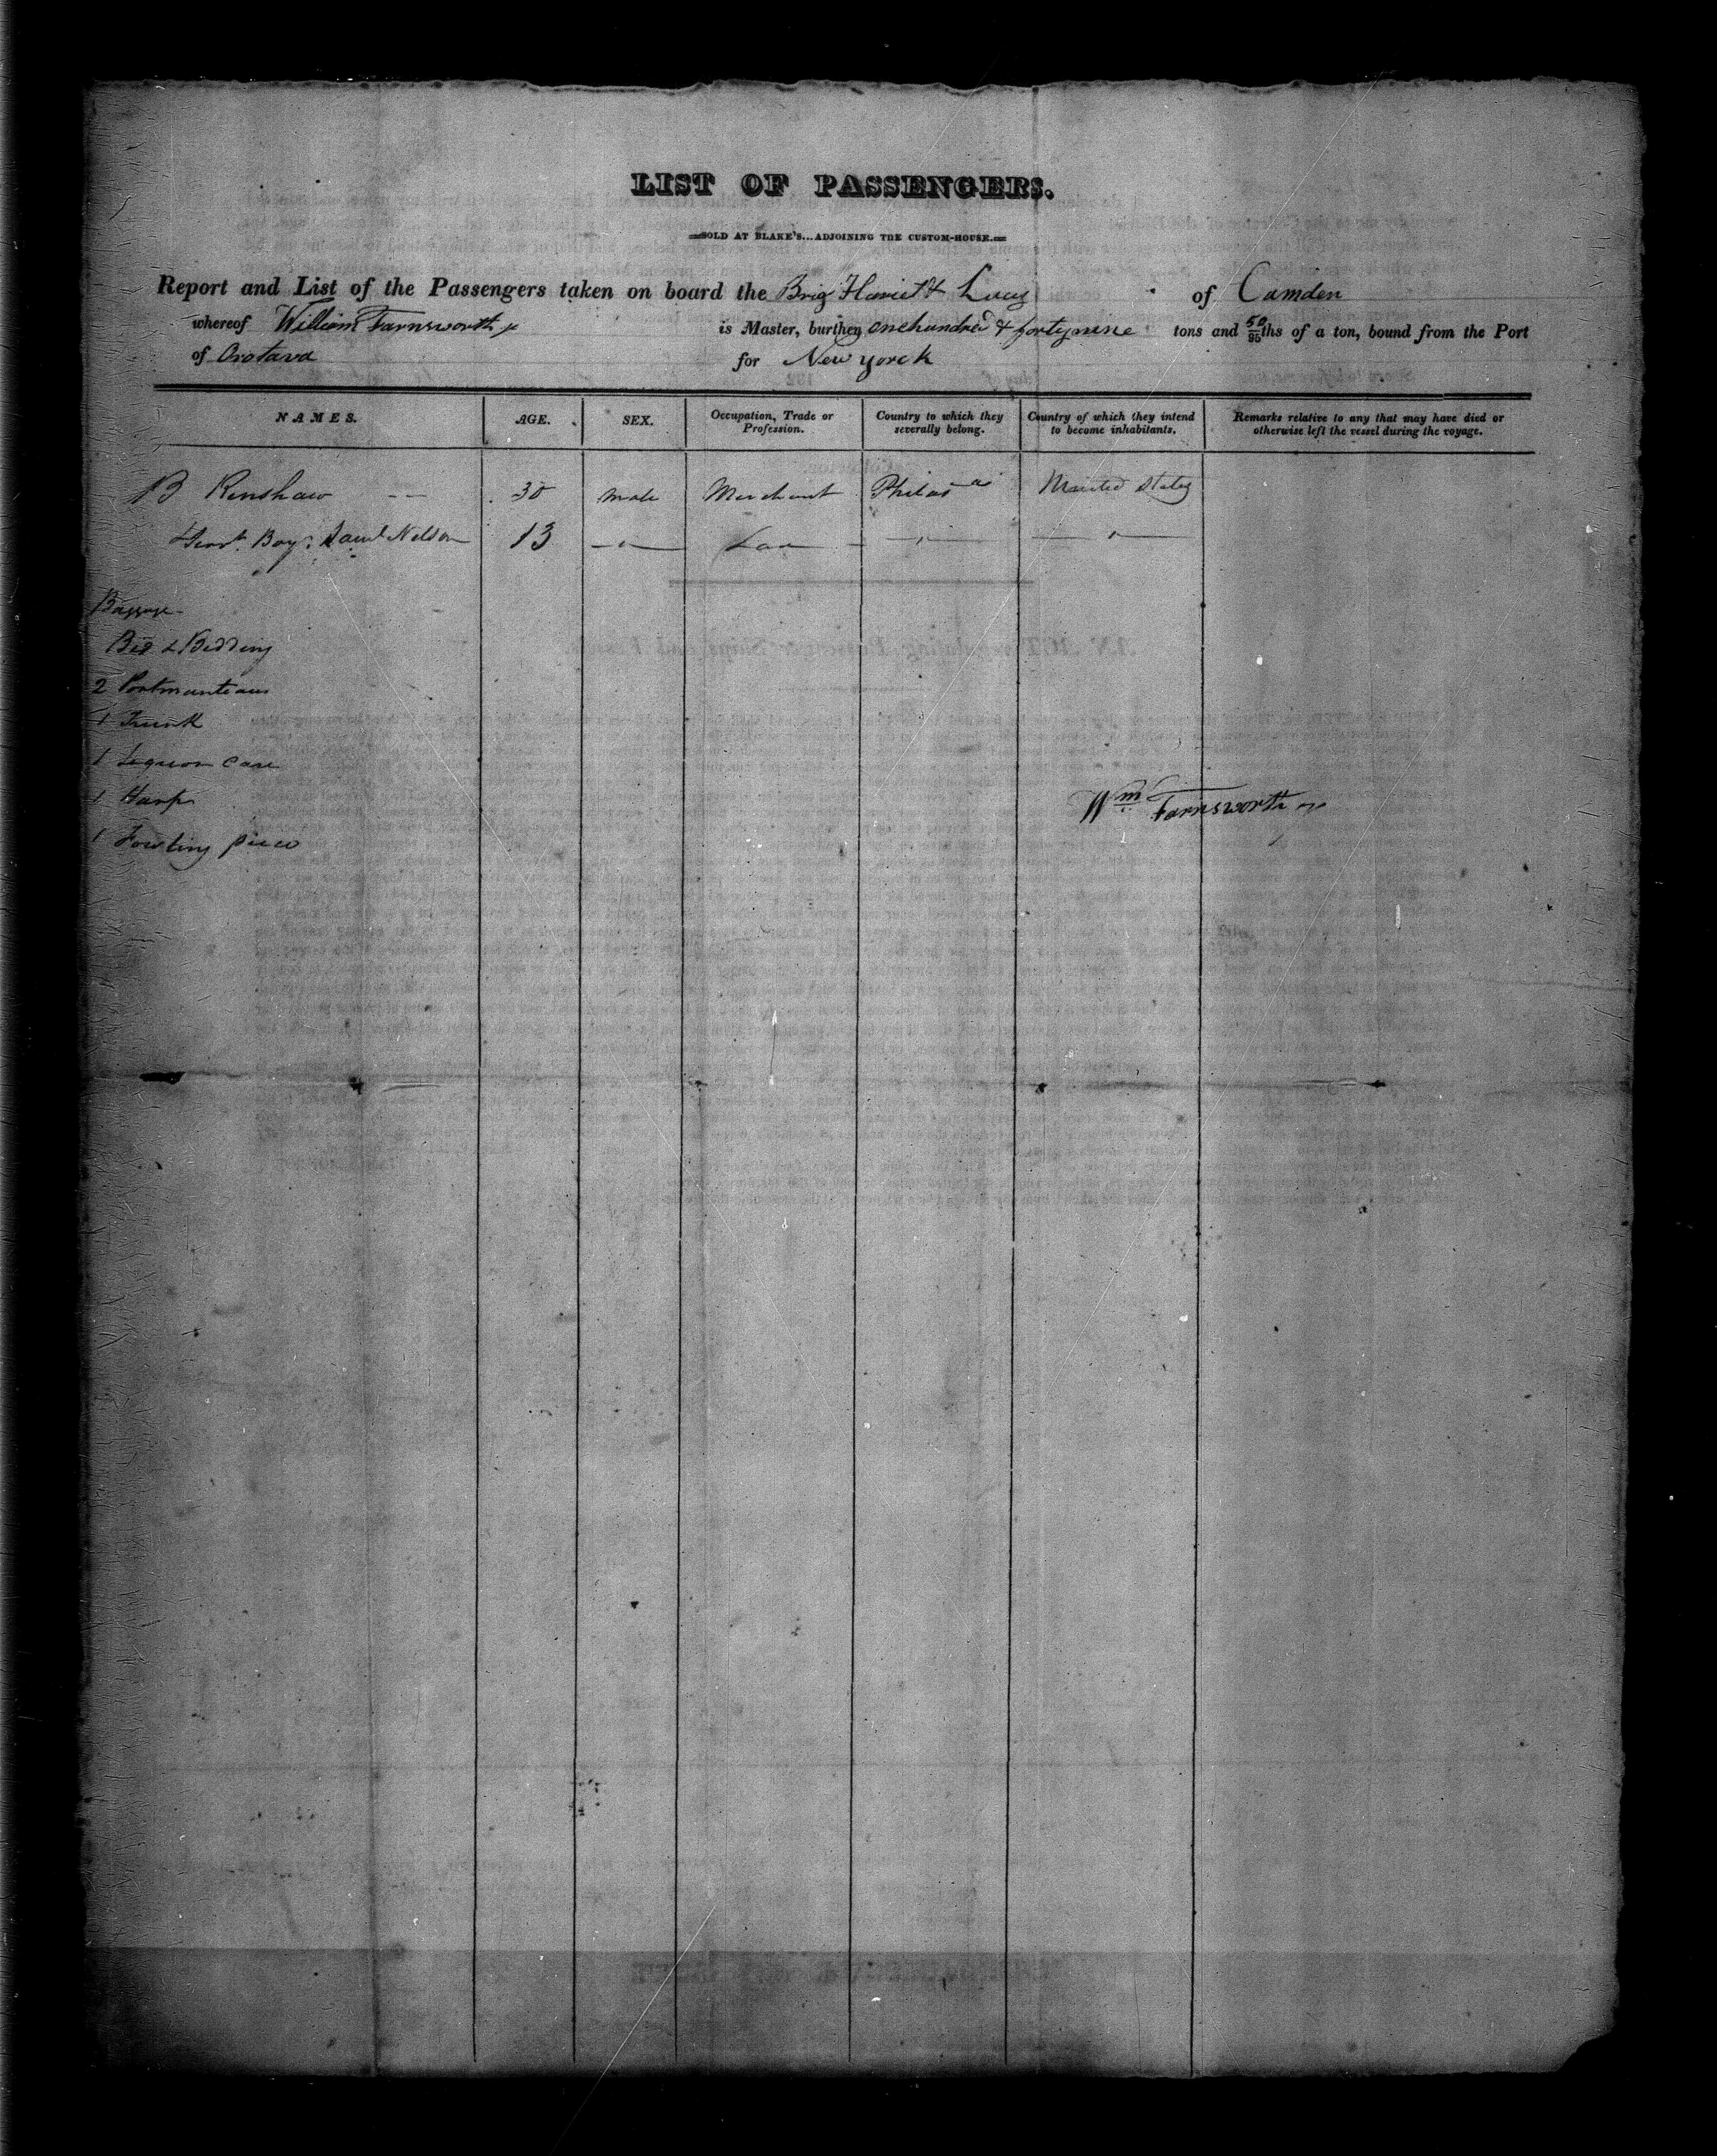 LIST OF PASSENGERS.
SOLD AT BLAKE'S...ADJOINING THE CUSTOM-HOUSE.
Report and List of the Passengers taken on board the Brig Harriet & Lucy of Camden
whereof William Farnsworth is Master, burthen onehundred & fortynine tons and 50/95ths of a ton, bound from the Port
of Orotava for New yorck
NAMES. AGE. SEX. Occupation, Trade or Profession. Country to which they severally belong. Country of which they intend to become inhabitants. Remarks relative to any that may have died or otherwise left the vessel during the voyage.
B Renshaw 30 male Merchant Philad a United States
Servt. Boy: Saml Nelson 13 — " — — " — — " —
Baggage
Bed & Bedding
2 Portmanteaus
1 Trunk
1 Liquor Case
1 Harp
1 Fowling piece
Wm Farnsworth